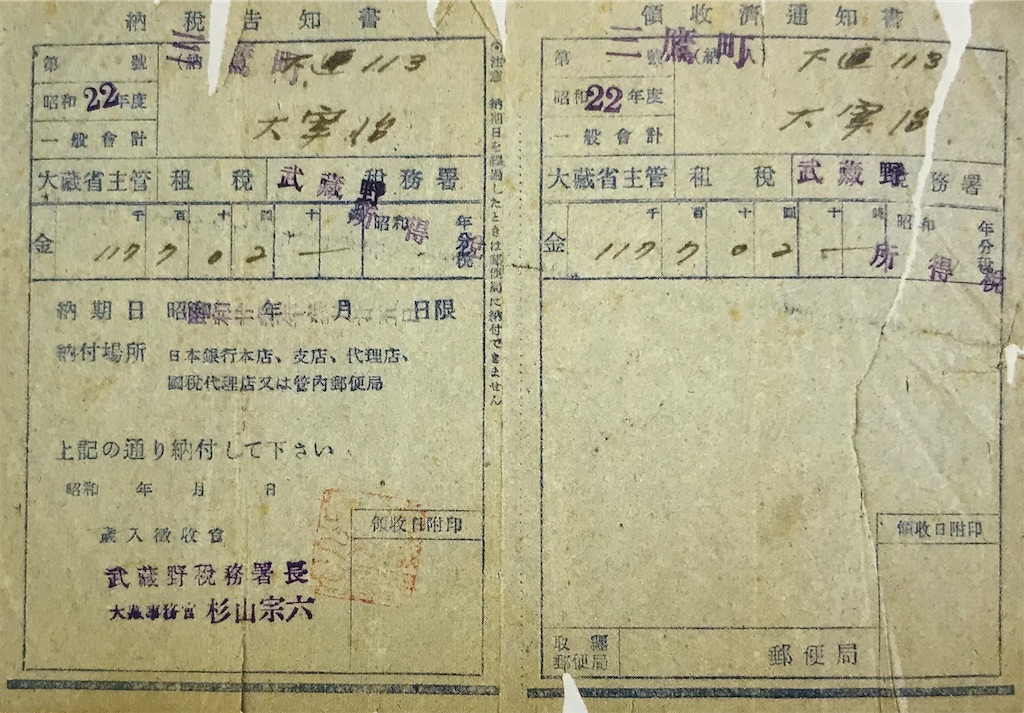 納税告知書
三鷹町
第 號 (納 下連 113
昭和22年度
大宰 治
一般會計
大蔵省主管 租税 武蔵野税務署
千 百 十 圓 十 錢
金 117702 一
昭和 年分税
所得税
納期日 昭和 年 月 日限
納付場所 日本銀行本店、支店、代理店、
國税代理店又は管内郵便局
上記の通り納付して下さい
昭和 年 月 日
歳入徴收官
領收日附印
武蔵野税務署長
杉山宗六
注意 納期日を經過したときは郵便局に納付できません
領收濟通知書
三鷹町
第 號 (納 人) 下連 113
昭和22年度
大宰 治
一般會計
大蔵省主管 租税 武蔵野税務署
千 百 十 圓 十 錢
金 117702 一
昭和 年分税
所得税
領收日附印
取纒郵便局
郵便局